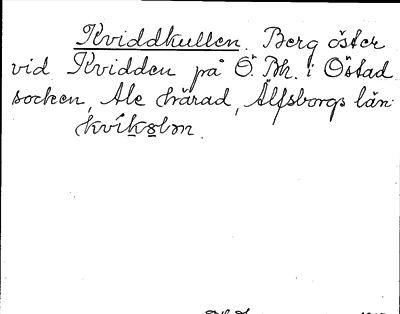 Kviddkullen. Berg öster
vid Kvidden på Ö. Bh. i Östad
socken, Ale härad, Älfsborgs län.